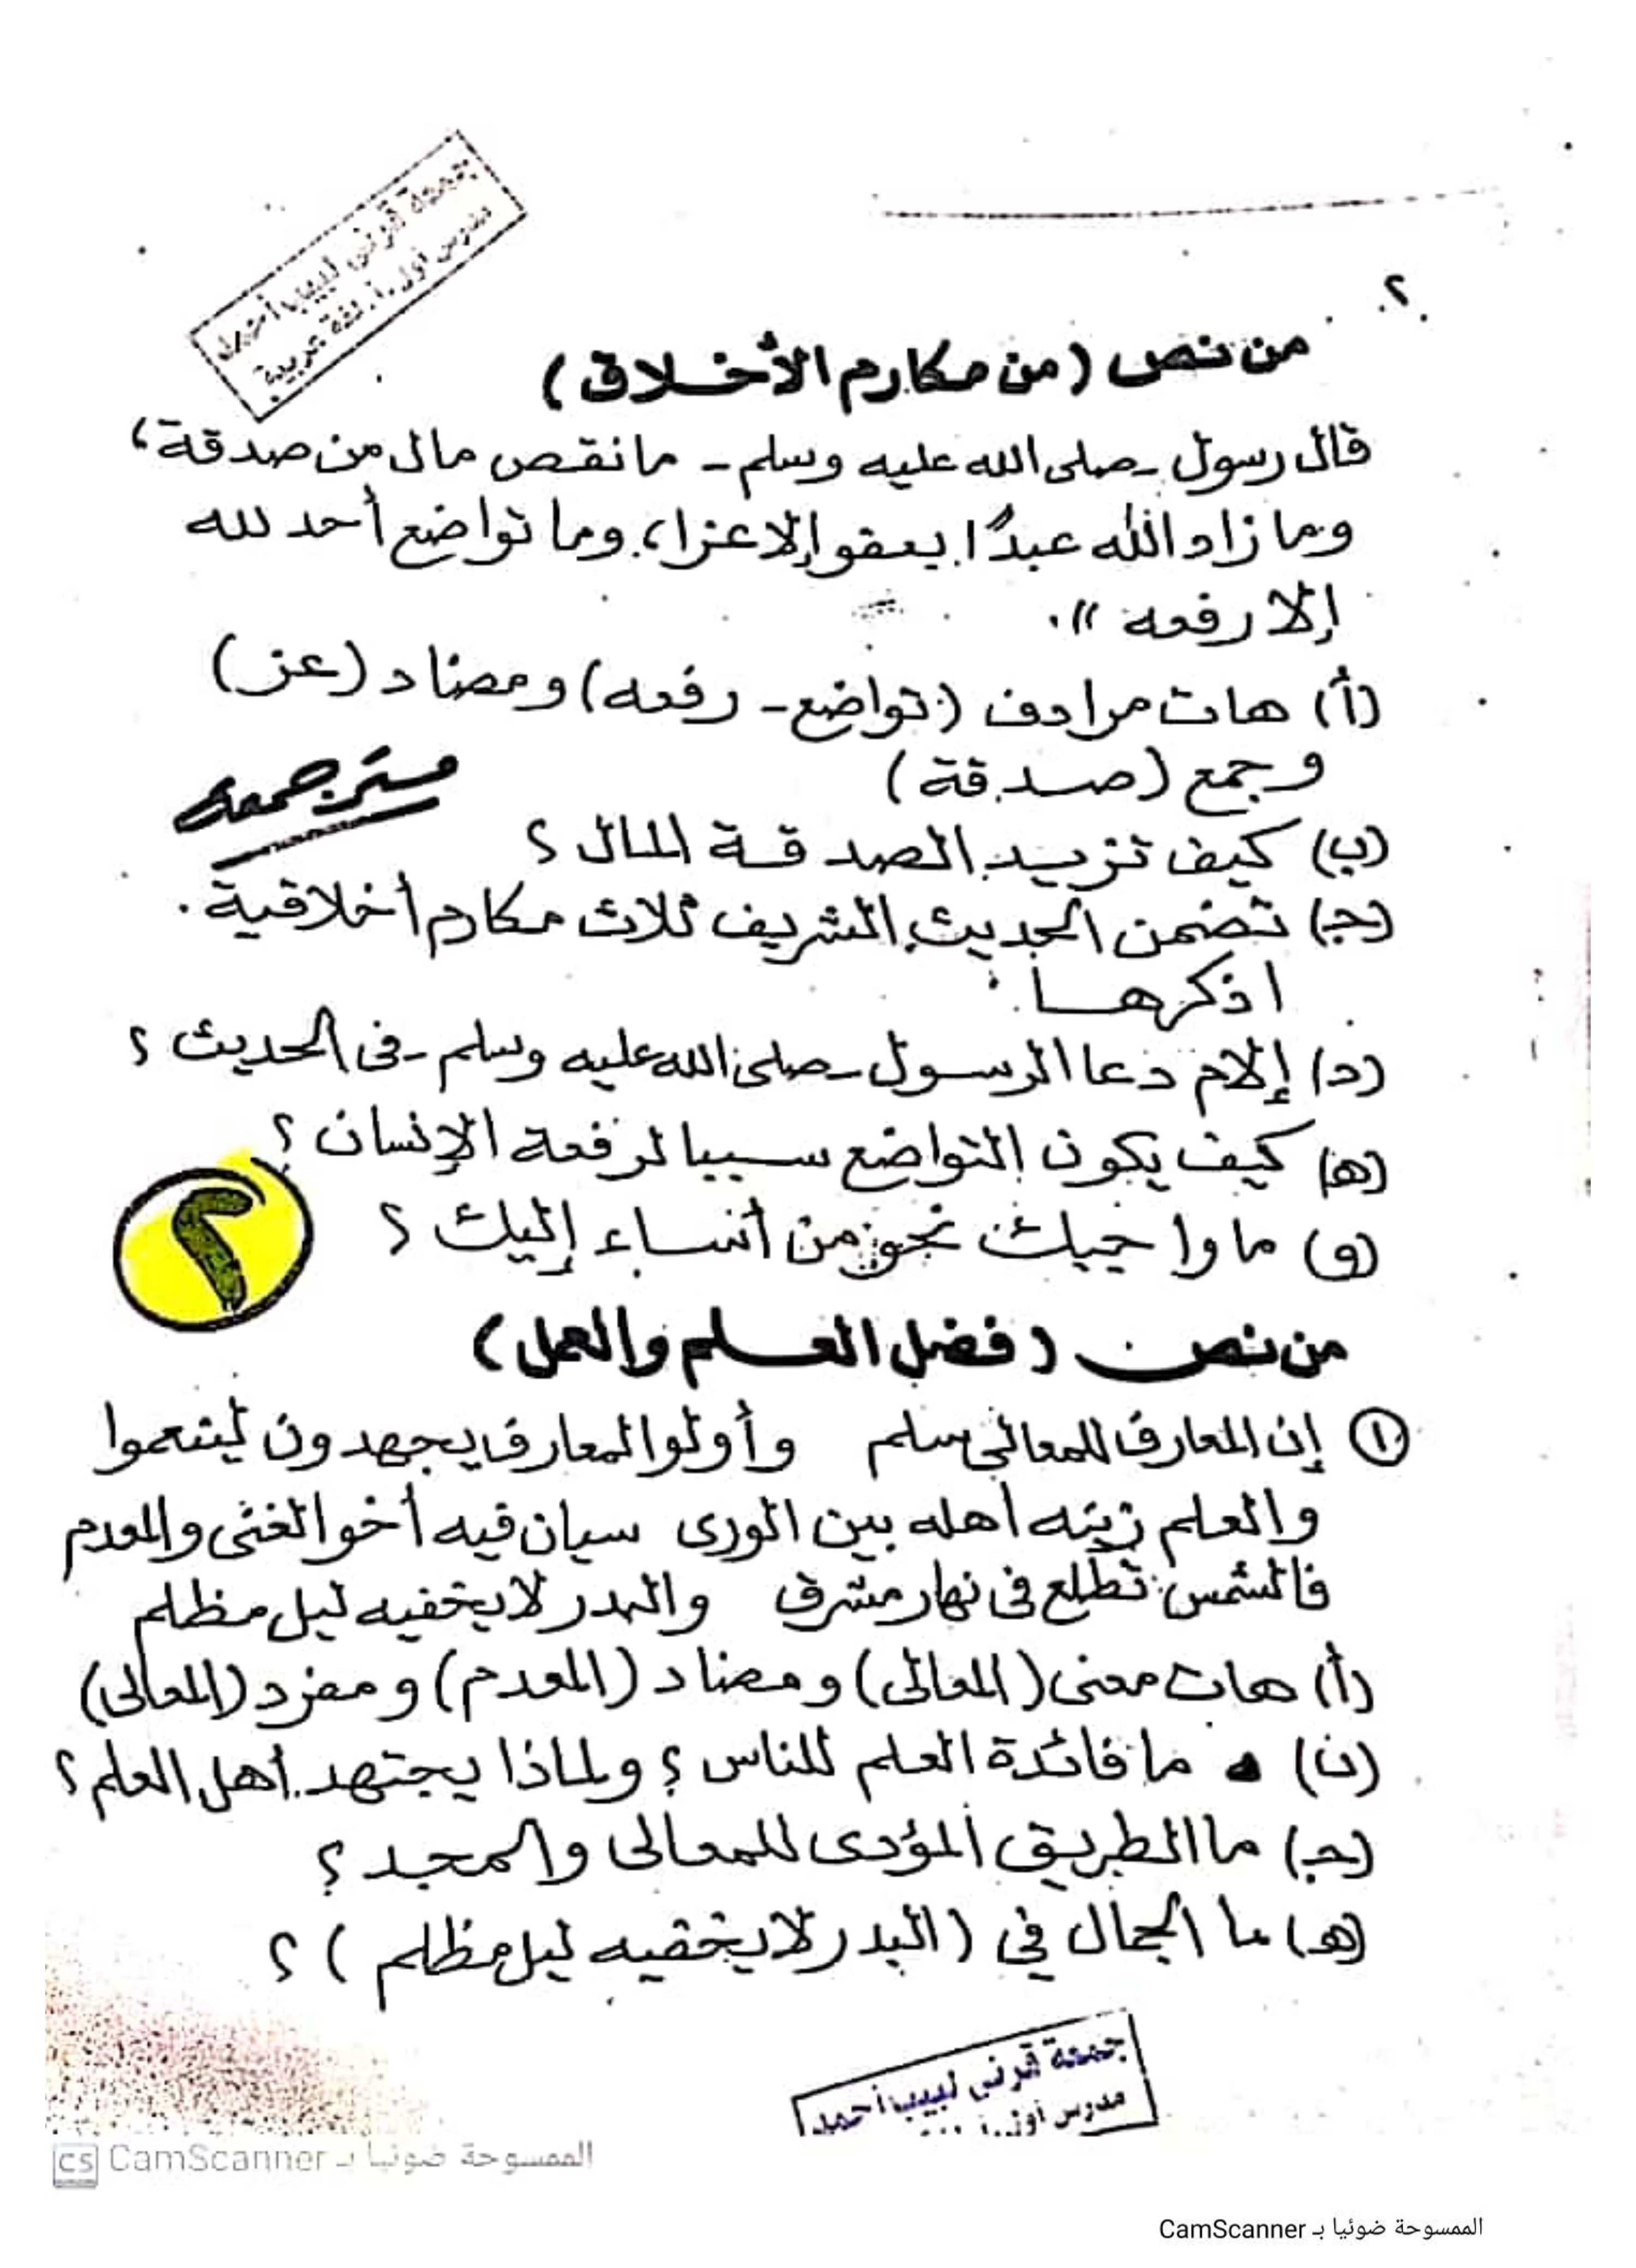 جمعة قرنى لبيب أحمد
مدرس أول أ. لغة عربية
٢
من نص (من مكارم الأخلاق)
قال رسول - صلى الله عليه وسلم - ما نقص مال من صدقة،
وما زاد الله عبدًا بعفو إلا عزا، وما تواضع أحد لله
إلا رفعه )).
(أ) هات مرادف (تواضع - رفعه) ومضاد (عز)
وجمع (صدقة)
مستر جمعه
(ب) كيف تزيد الصدقة المال ؟
(جـ) تضمن الحديث الشريف ثلاث مكارم أخلاقية.
اذكرها.
(د) إلام دعا الرسول - صلى الله عليه وسلم - فى الحديث ؟
(هـ) كيف يكون التواضع سببا لرفعة الإنسان ؟
(و) ما واجبك نحو من أساء إليك ؟
٢
من نص (فضل العلم والعمل)
١ إن المعارف للمعالى سلم وأولوا المعارف يجهدون لينعموا
والعلم زينه أهله بين الورى سيان فيه أخو الغنى والمعدم
فالشمس تطلع فى نهار مشرق والبدر لا يخفيه ليل مظلم
(أ) هات معنى (المعالى) ومضاد (المعدم) ومفرد (المعالى)
(ن) ما فائدة العلم للناس ؟ ولماذا يجتهد أهل العلم ؟
(جـ) ما الطريق المؤدى للمعالى والمجد ؟
(هـ) ما الجمال في (البدر لا يخفيه ليل مظلم) ؟
جمعة قرنى لبيب أحمد
مدرس أول
CS CamScanner الممسوحة ضوئيا بـ
الممسوحة ضوئيا بـ CamScanner